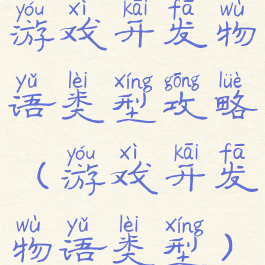 yóu xì kāi fā wù
游戏开发物
yǔ lèi xíng gōng lüè
语类型攻略
yóu xì kāi fā
（游戏开发
wù yǔ lèi xíng
物语类型）